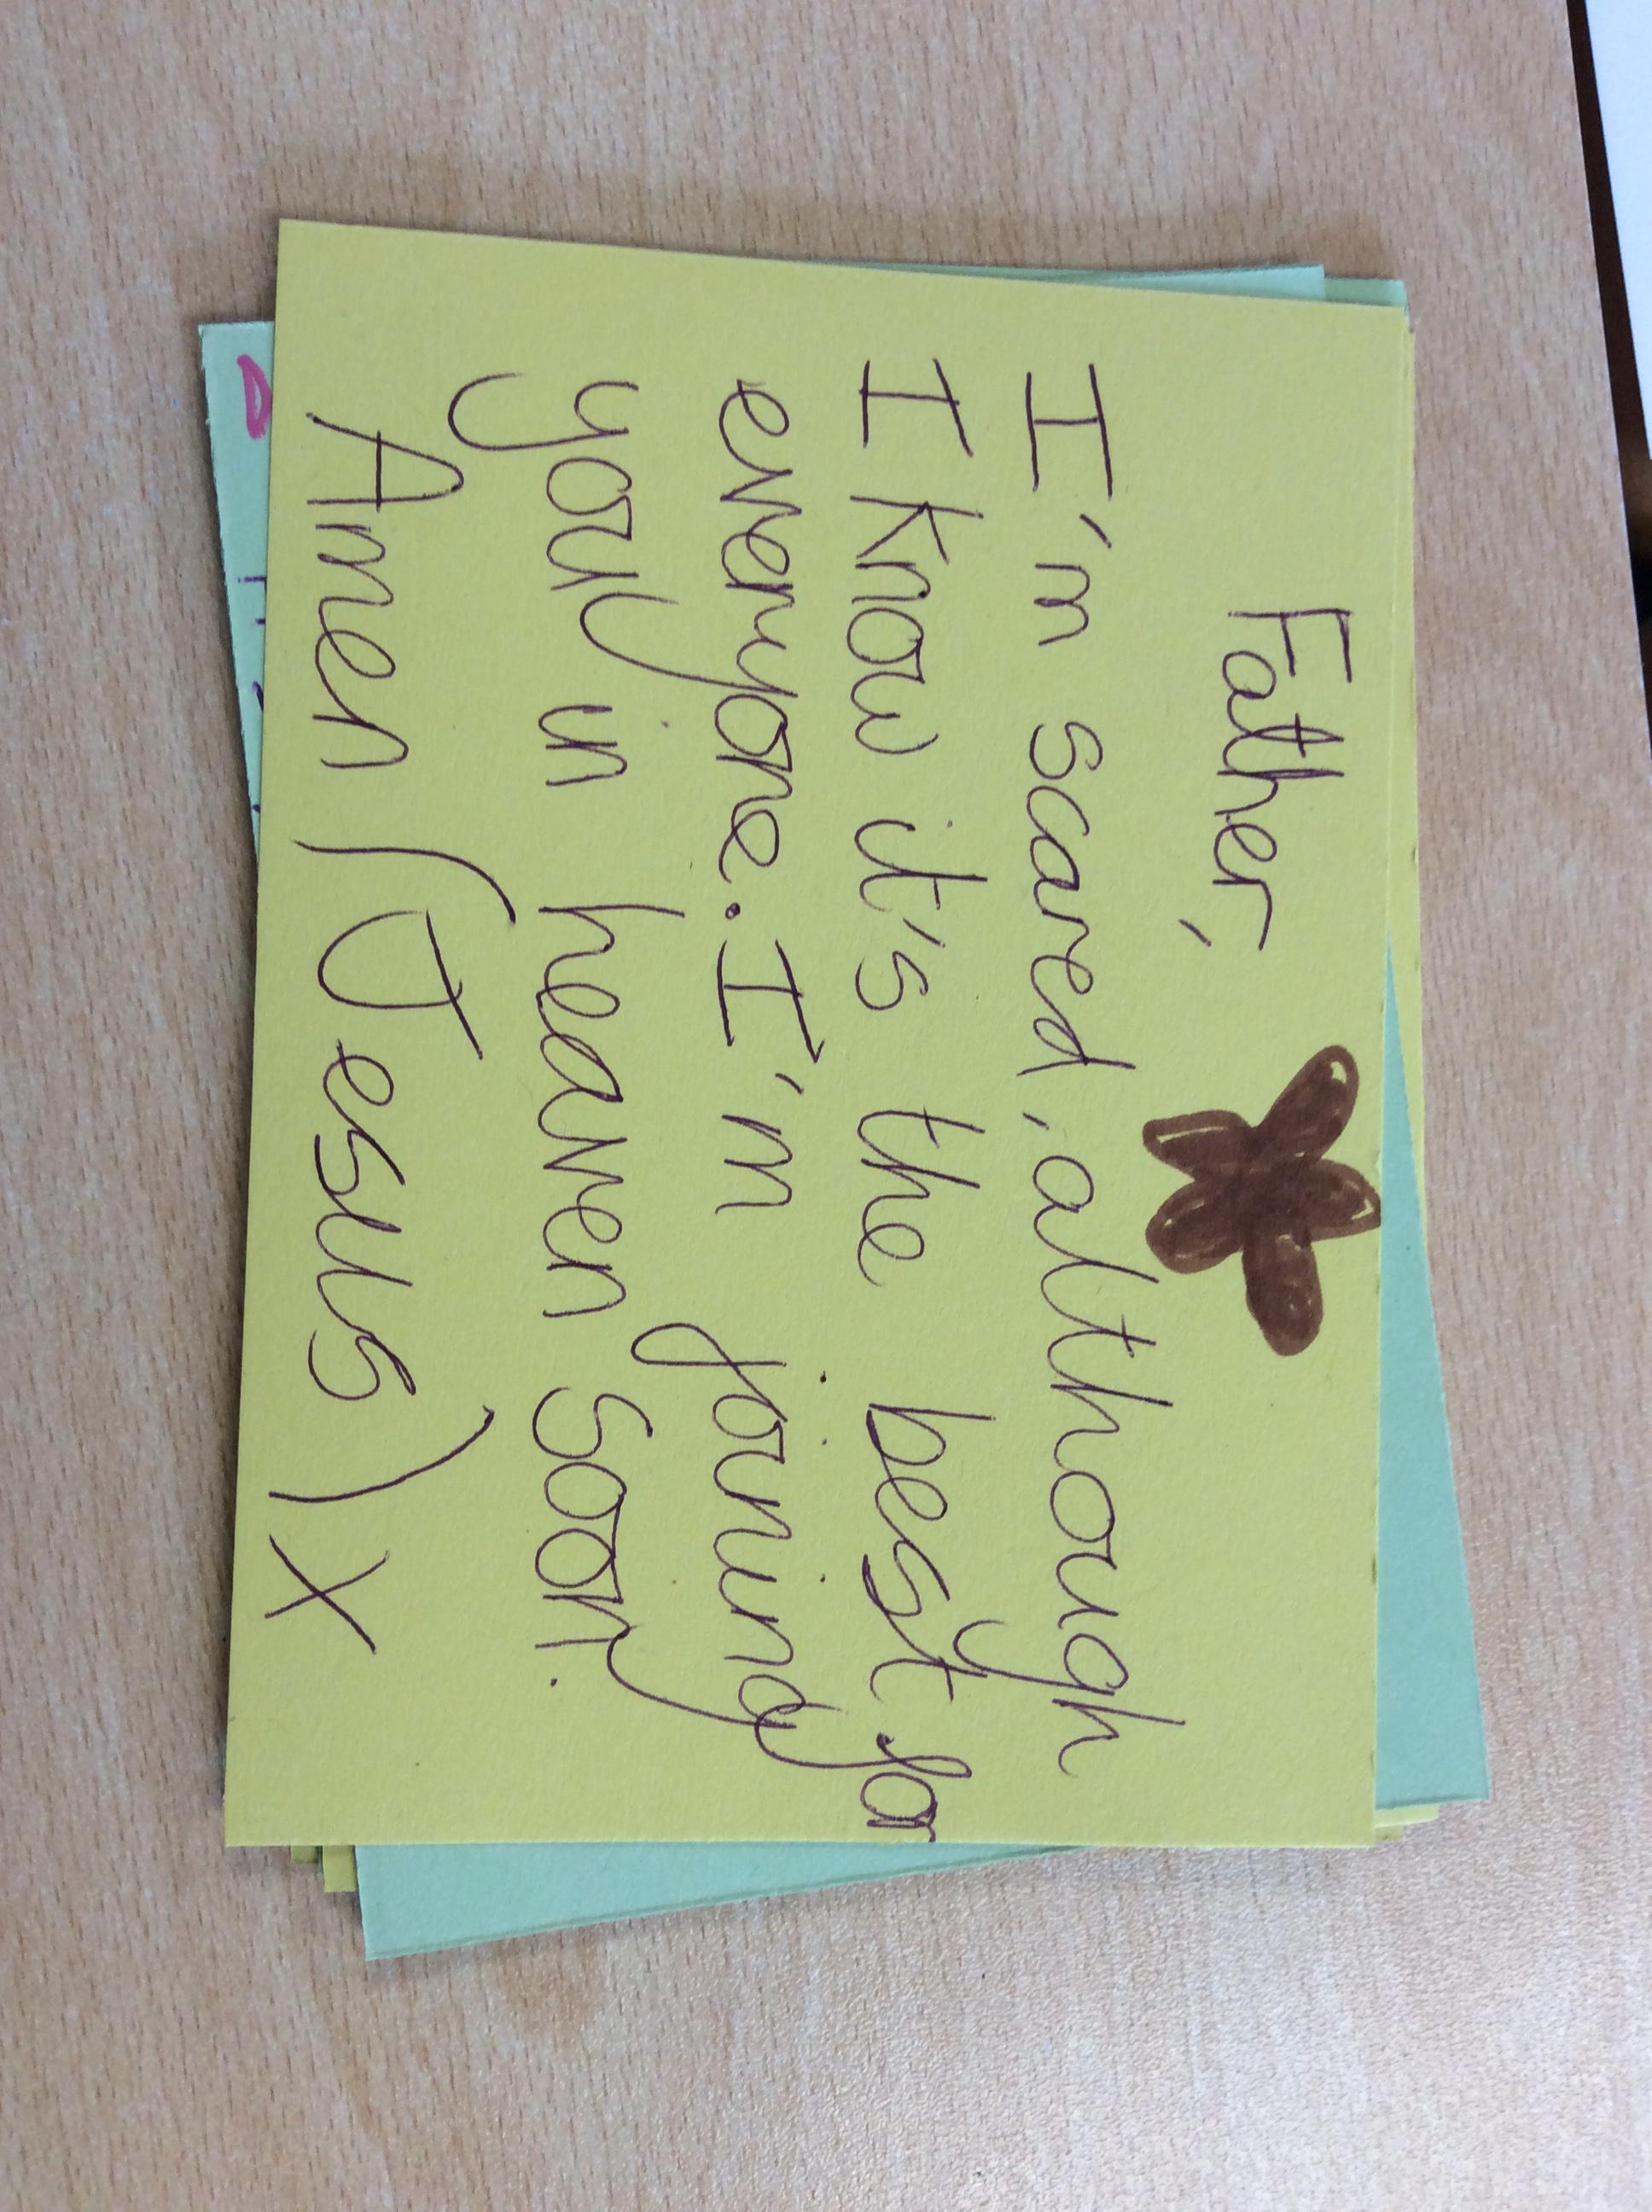 Father,
I'm scared, although
I know it's the best for
everyone. I'm joining
you in heaven soon.
Amen (Jesus) x